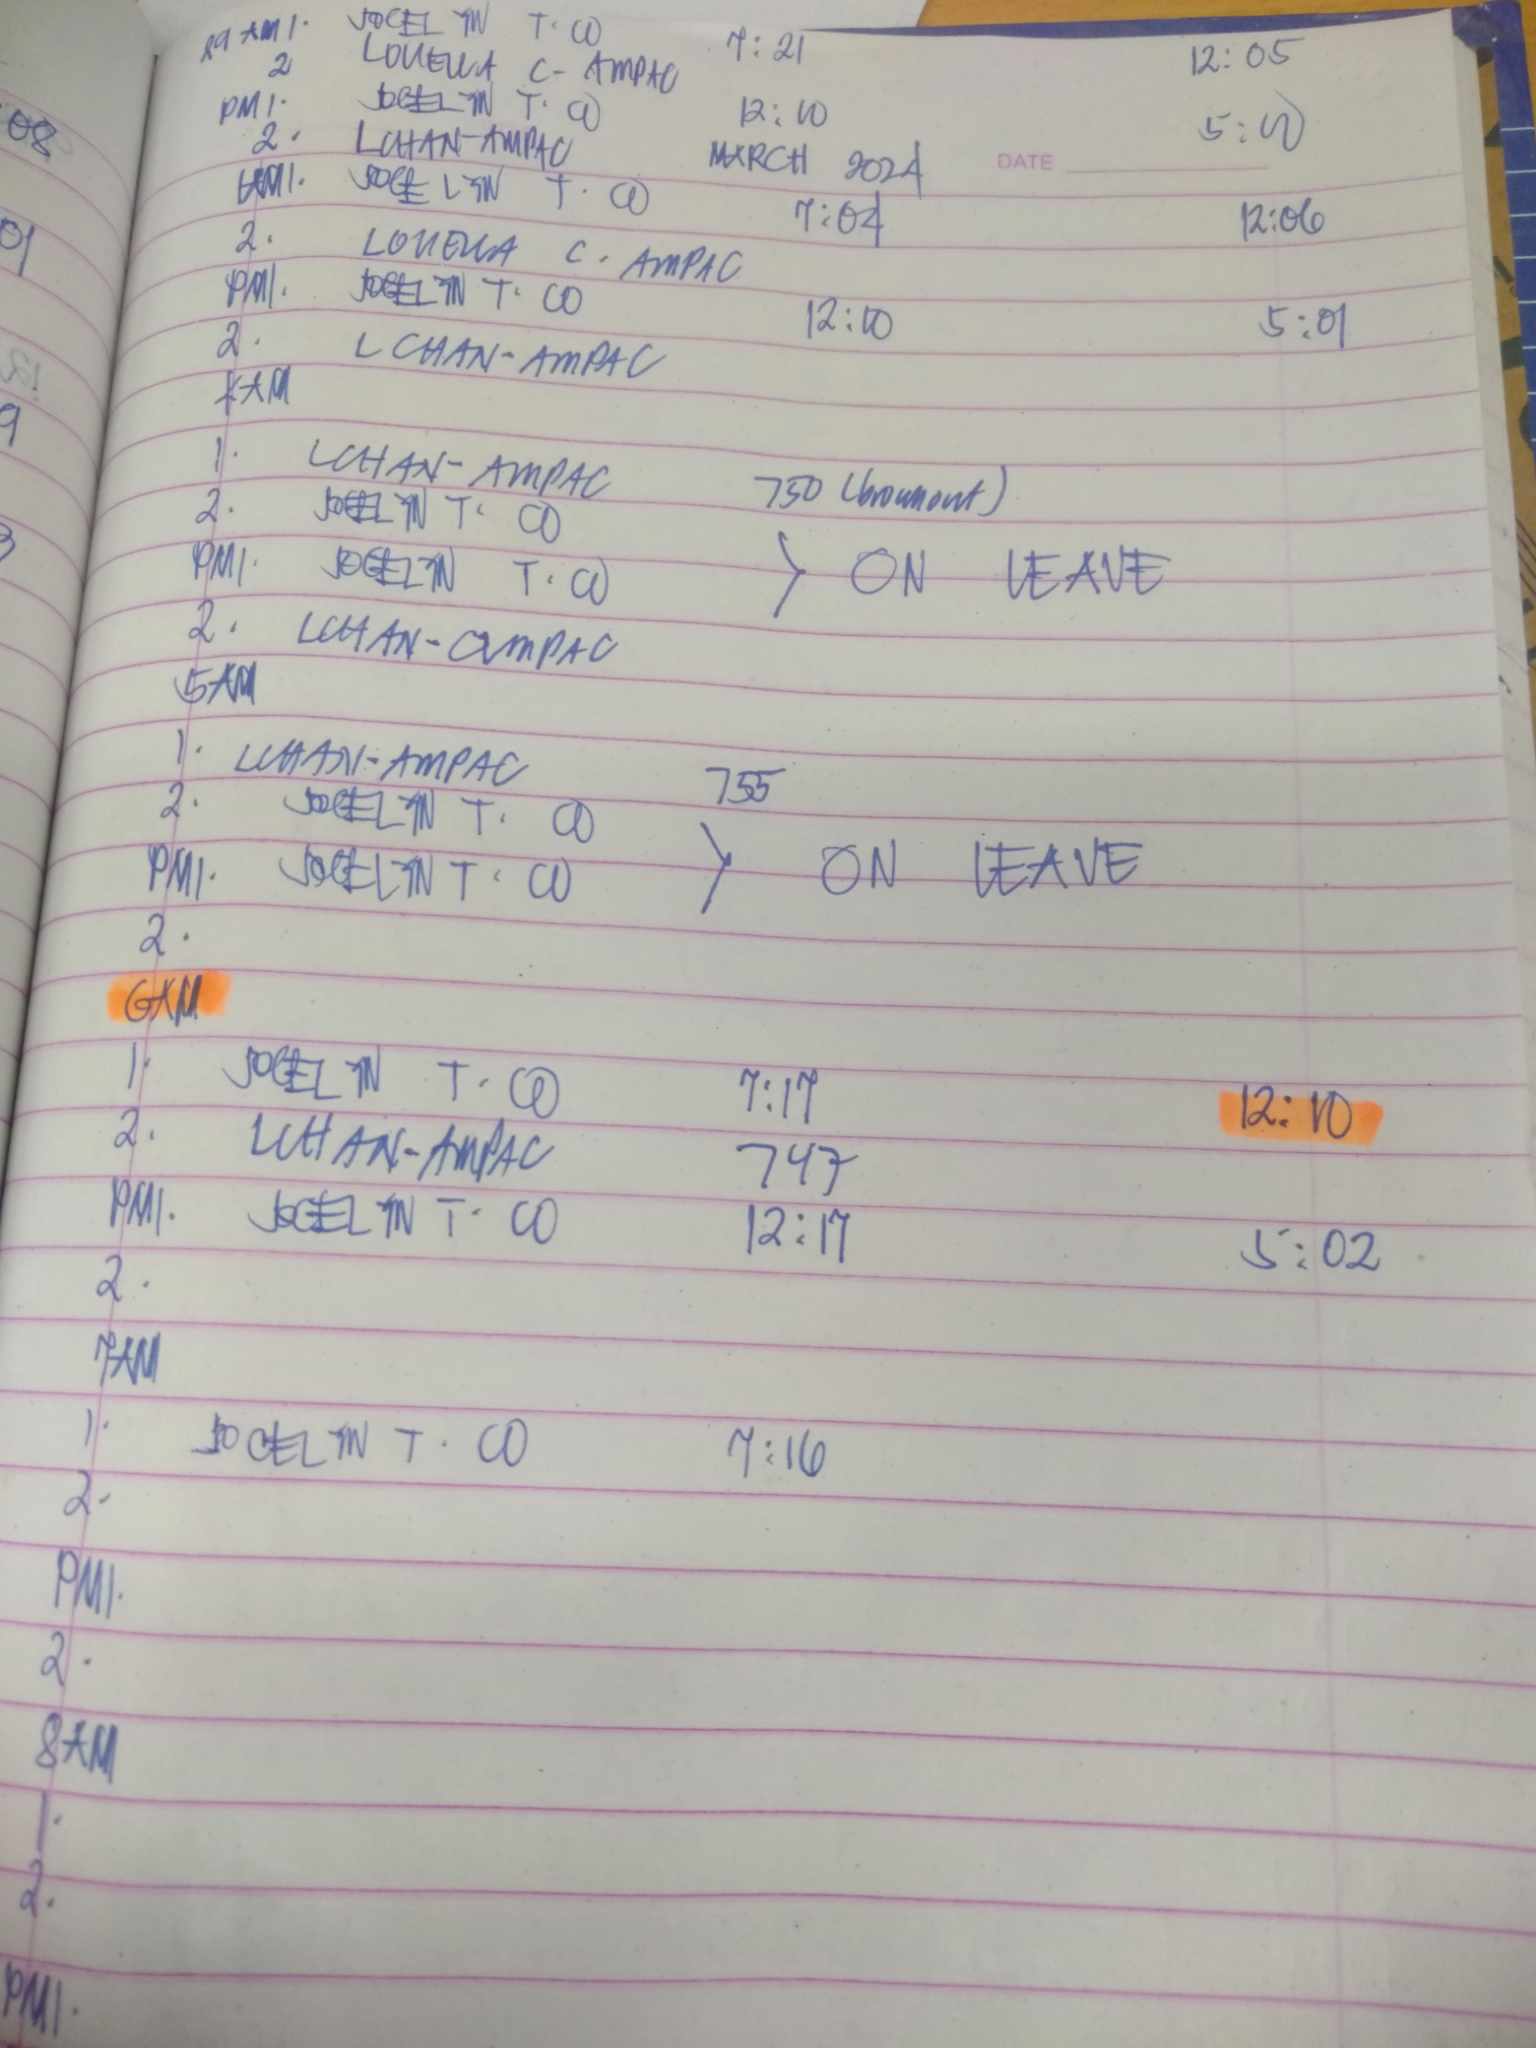 29 AM 1. JOCELYN T. CO 7:21 12:05
2 LOUELLA C-AMPAC
PM 1. JOCELYN T. CO 12:10 5:10
2. LCHAN-AMPAC MARCH 2024 DATE
1AM1. JOCELYN T. CO 7:04 12:06
2. LOUELLA C. AMPAC
PM1. JOCELYN T. CO 12:10 5:01
2. LCHAN-AMPAC
4AM
1. LCHAN-AMPAC 750 (brownout)
2. JOCELYN T. CO
PM1. JOCELYN T. CO > ON LEAVE
2. LCHAN-AMPAC
5AM
1. LCHAN-AMPAC 755
2. JOCELYN T. CO
PM1. JOCELYN T. CO > ON LEAVE
2.
6AM
1. JOCELYN T. CO 7:17 12:10
2. LCHAN-AMPAC 747
PM1. JOCELYN T. CO 12:17 5:02
2.
7AM
1. JOCELYN T. CO 7:16
2.
PM1.
2.
8AM
1.
2.
PM1.